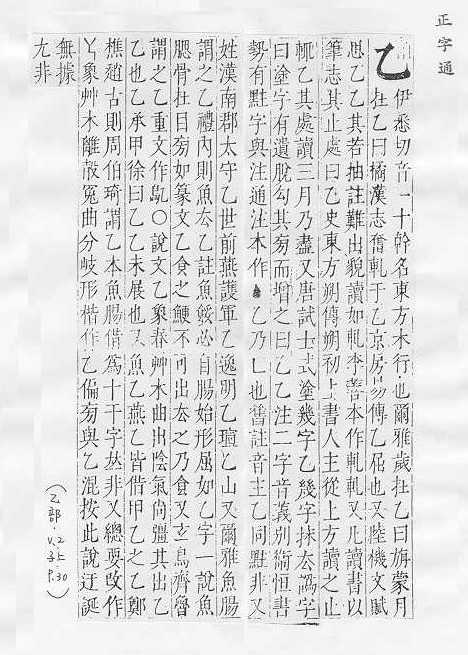 正字通
乙 伊悉切音一十幹名東方木行也爾雅歲在乙曰旃蒙月
在乙曰橘漢志奮軋于乙京房易傳乙屈也又陸機文賦
思乙乙其若抽註難出貌讀如軋李善本作軋軋又凡讀書以
筆志其止處曰乙史東方朔傳朔初上書人主從上方讀之止
輒乙其處讀三月乃盡又唐試士式塗幾字乙幾字抹去譌字
曰塗字有遺脫勾其旁而增之曰乙乙注二字音義別衞恒書
勢有黈字與注通注本作 乙乃乚也舊註音主乙同黈非又
姓漢南郡太守乙世前燕護軍乙逸明乙瑄乙山又爾雅魚腸
謂之乙禮內則魚去乙註魚餒必自腸始形屈如乙字一說魚
腮骨在目旁如篆文乙食之鯁不可出去之乃食又玄鳥齊魯
謂之乙重文作鳦○說文乙象春艸木曲出陰氣尚彊其出乙
乙也乙承甲徐曰乙乙未展也又魚乙燕乙皆借甲乙之乙鄭
樵趙古則周伯琦謂乙本魚腸借爲十干字𠀤非又總要改作
丫象艸木離殻冤曲分岐形楷作乙偏旁與乙混按此說迂誕
無據
尢非
(乙部. V.2 子上 P.30)